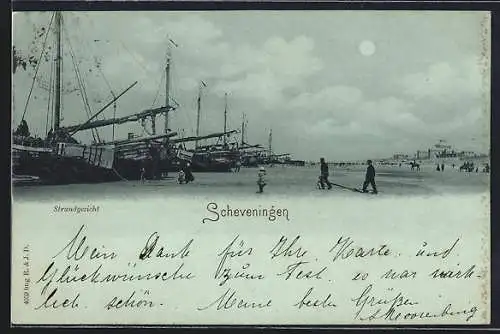 Strandgezicht
Scheveningen
Mein Dank für Ihre Karte und
Glückwünsche zum Fest. es war wirk-
lich schön. Meine besten Grüße
402 Aug. R. & J. D.